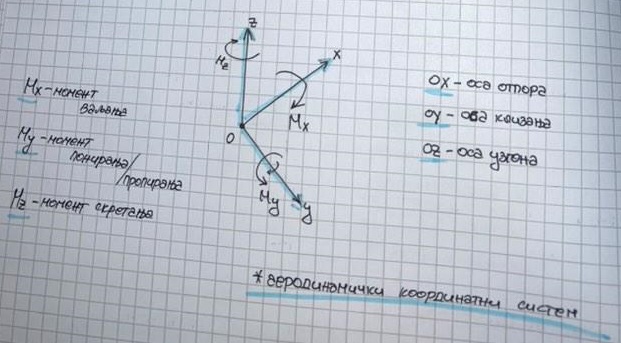 z
Mz
x
Mx
O
My
y
Mx - момент
ваљања
My - момент
понирања/
/пропирања
Mz - момент скретања
OX - оса отпора
OY - оса клизања
OZ - оса узгона
*аеродинамички координатни систем